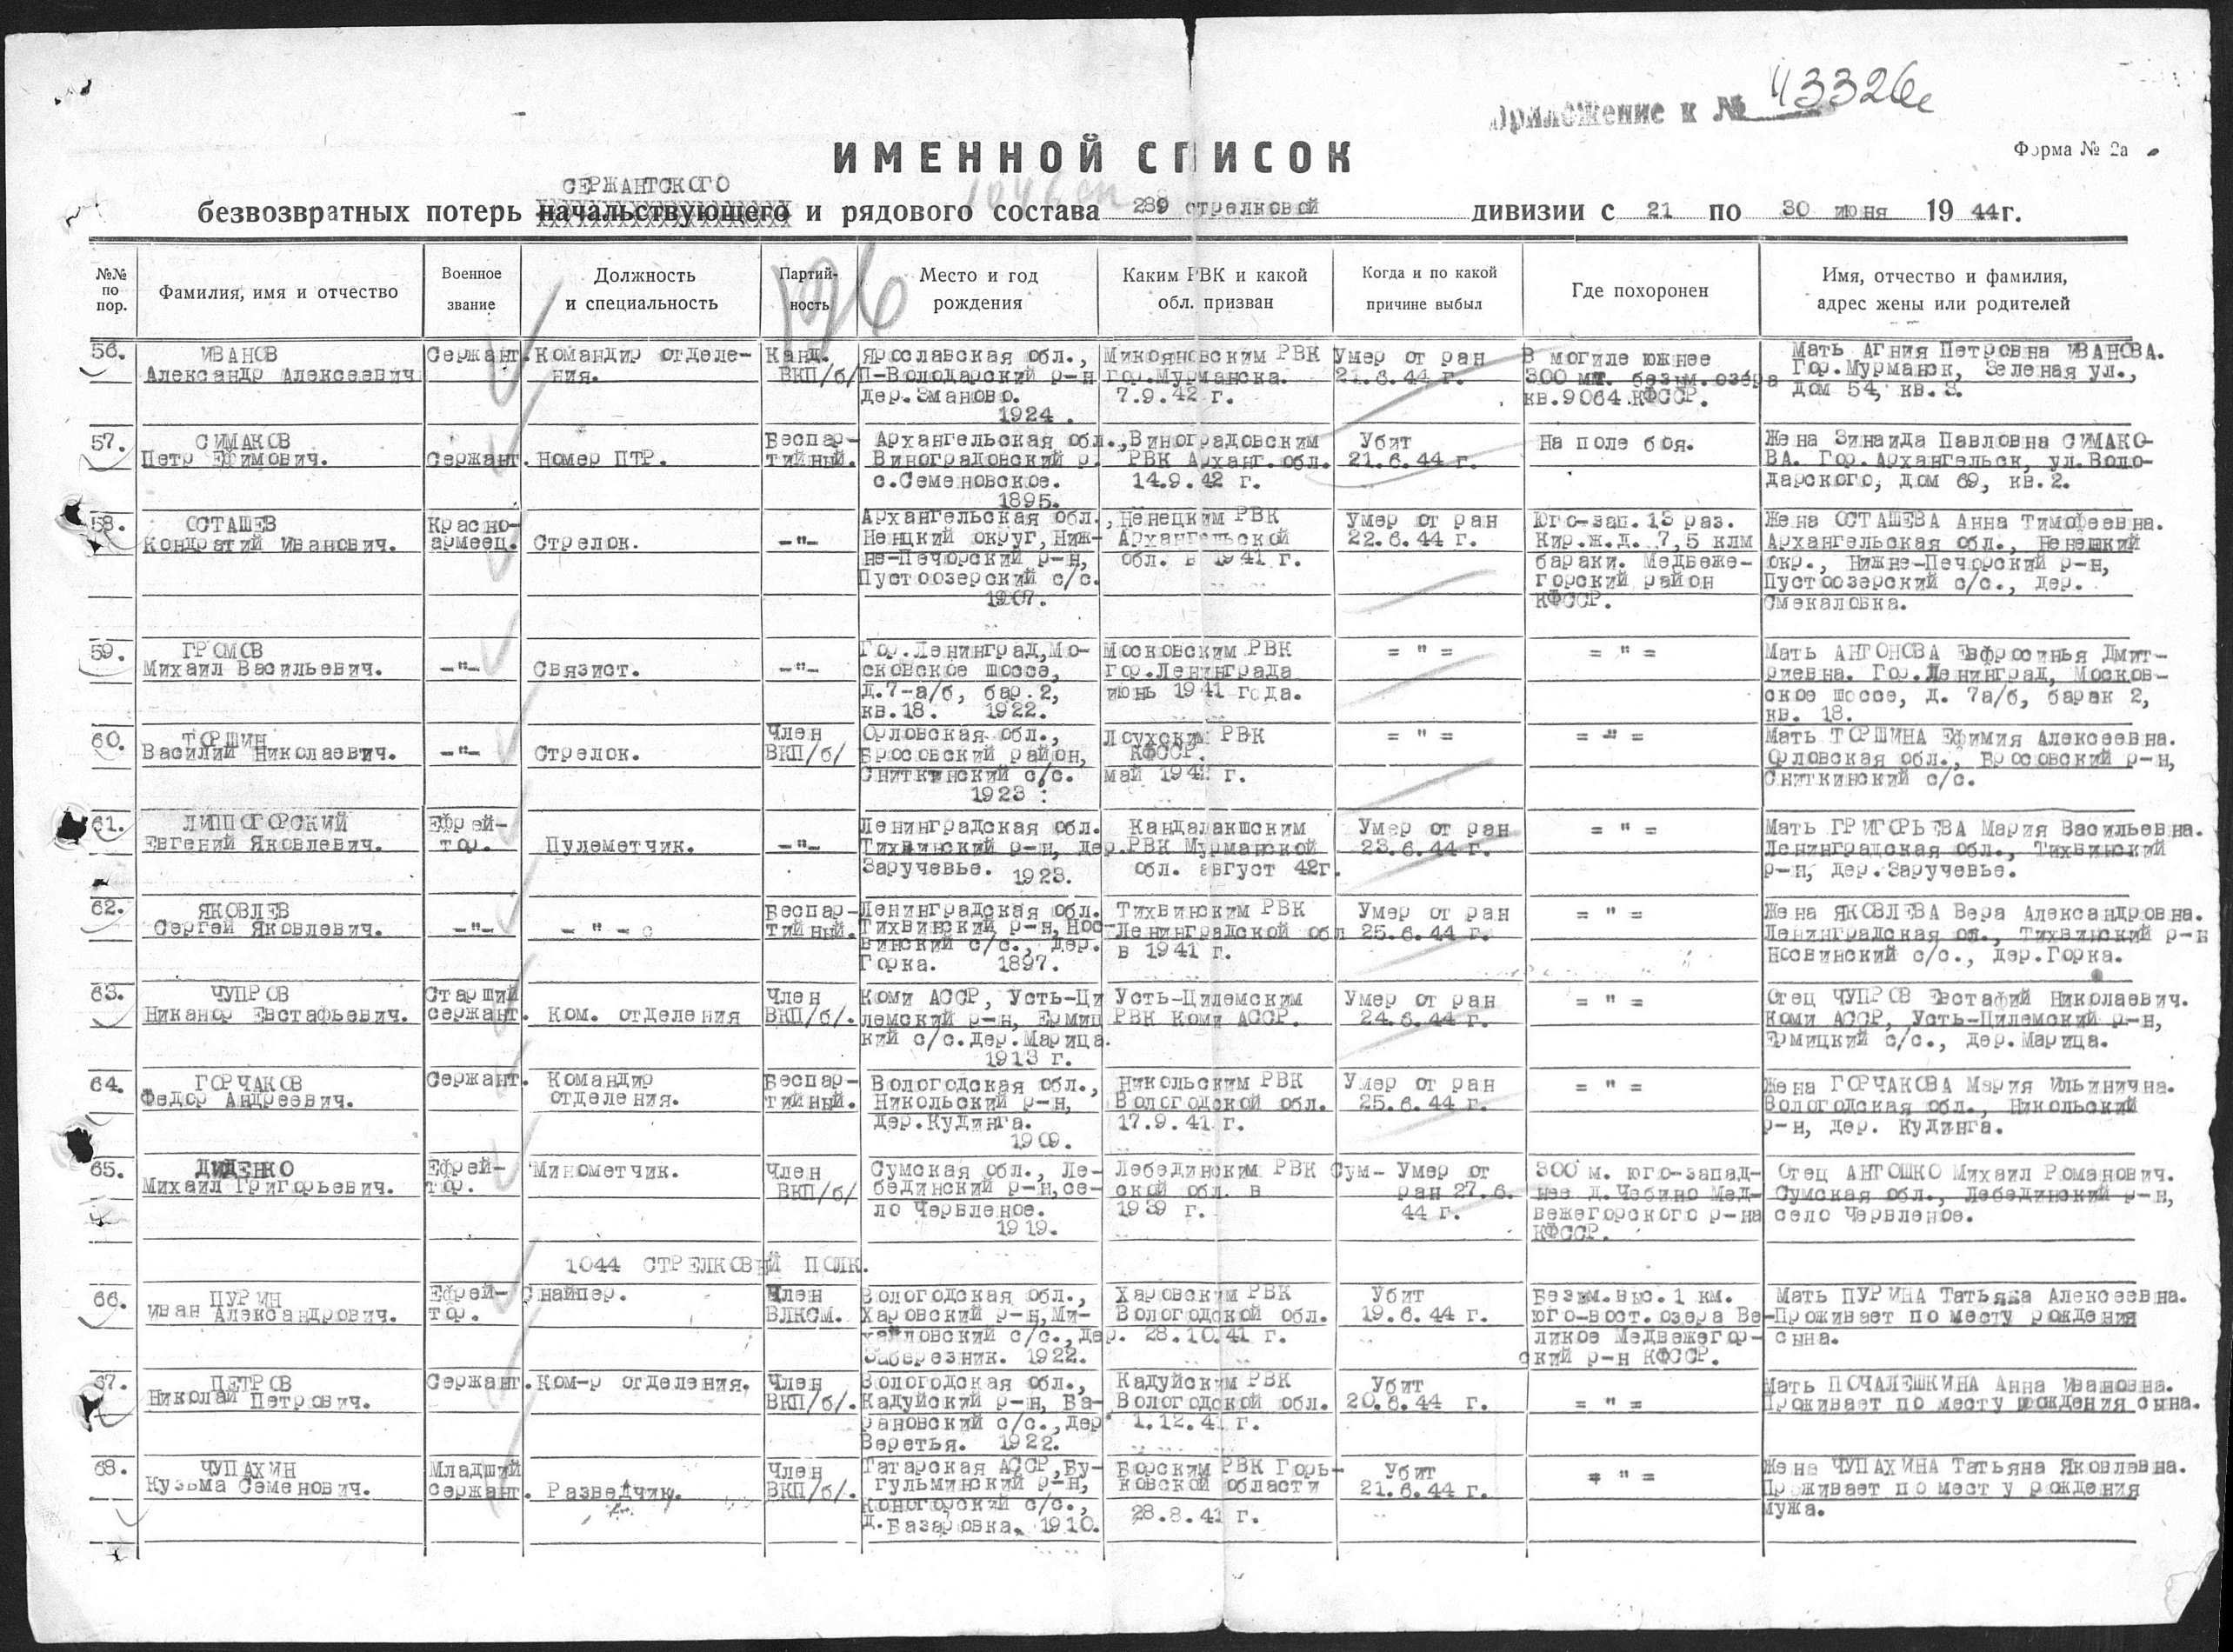 Приложение к № 43326с
ИМЕННОЙ СПИСОК
Форма № 2а
СЕРЖАНТСКОГО
безвозвратных потерь начальствующего и рядового состава 289 стрелковой дивизии с 21 по 30 июня 1944г.
126
№№ по пор.
Фамилия, имя и отчество
Военное звание
Должность и специальность
Партийность
Место и год рождения
Каким РВК и какой обл. призван
Когда и по какой причине выбыл
Где похоронен
Имя, отчество и фамилия, адрес жены или родителей
56.
ИВАНОВ
Александр Алексеевич
Сержант.
Командир отделе-
ния.
Канд.
ВКП/б/
Ярославская обл.,
П-Володарский р-н
дер.Эманово.
1924.
Микояновским РВК
гор.Мурманска.
7.9.42 г.
Умер от ран
21.6.44 г.
В могиле южнее
300 мт. безым.озера
кв.9064.КФССР.
Мать Агния Петровна ИВАНОВА.
Гор.Мурманск, Зеленая ул.,
дом 54, кв. 3.
57.
СИМАКОВ
Петр Ефимович.
Сержант.
Номер ПТР.
Беспар-
тийный.
Архангельская обл.,
Виноградовский р.
с.Семеновское.
1895.
Виноградовским
РВК Арханг.обл.
14.9.42 г.
Убит
21.6.44 г.
На поле боя.
Жена Зинаида Павловна СИМАКО-
ВА. Гор.Архангельск, ул.Воло-
дарского, дом 69, кв.2.
58.
ОСТАШЕВ
Кондратий Иванович.
Красно-
армеец.
Стрелок.
-"-
Архангельская обл.,
Ненцкий округ, Ниж-
не-Печорский р-н,
Пустоозерский с/с.
1907.
Ненецким РВК
Архангельской
обл. в 1941 г.
Умер от ран
22.6.44 г.
Юго-зап. 13 раз.
Кир.ж.д. 7,5 клм
бараки. Медвеже-
горский район
КФССР.
Жена ОСТАШЕВА Анна Тимофеевна.
Архангельская обл., Ненецкий
окр., Нижне-Печорский р-н,
Пустоозерский с/с., дер.
Смекаловка.
59.
ГРОМОВ
Михаил Васильевич.
-"-
Связист.
-"-
Гор.Ленинград,Мо-
сковское шоссе,
д.7-а/б, бар.2,
кв.18. 1922.
Московским РВК
гор.Ленинграда
июнь 1941 года.
= " =
= " =
Мать АНТОНОВА Евфросинья Дмит-
риевна. Гор.Ленинград, Москов-
ское шоссе, д. 7а/б, барак 2,
кв. 18.
60.
ТОРШИН
Василий Николаевич.
-"-
Стрелок.
Член
ВКП/б/
Орловская обл.,
Бросовский район,
Сниткинский с/с.
1923.
Лоухским РВК
КФССР.
май 1942 г.
= " =
= " =
Мать ТОРШИНА Ефимия Алексеевна.
Орловская обл., Бросовский р-н,
Сниткинский с/с.
61.
ЛИППОГОРСКИЙ
Евгений Яковлевич.
Ефрей-
тор.
Пулеметчик.
-"-
Ленинградская обл.
Тихвинский р-н, дер.
Заручевье. 1923.
Кандалакшским
РВК Мурманской
обл. август 42г.
Умер от ран
23.6.44 г.
= " =
Мать ГРИГОРЬЕВА Мария Васильевна.
Ленинградская обл., Тихвинский
р-н, дер.Заручевье.
62.
ЯКОВЛЕВ
Сергей Яковлевич.
-"-
- " -
Беспар-
тийный.
Ленинградская обл.
Тихвинский р-н, Нос-
винский с/с., дер.
Горка. 1897.
Тихвинским РВК
Ленинградской обл
в 1941 г.
Умер от ран
25.6.44 г.
= " =
Жена ЯКОВЛЕВА Вера Александровна.
Ленинградская об., Тихвинский р-н
Носвинский с/с., дер.Горка.
63.
ЧУПРОВ
Никанор Евстафьевич.
Старший
сержант.
Ком. отделения
Член
ВКП/б/.
Коми АССР, Усть-Ци
лемский р-н, Ермиц
кий с/с.дер.Марица.
1913 г.
Усть-Цилемским
РВК Коми АССР.
Умер от ран
24.6.44 г.
= " =
Отец ЧУПРОВ Евстафий Николаевич.
Коми АССР, Усть-Цилемский р-н,
Ермицкий с/с., дер.Марица.
64.
ГОРЧАКОВ
Федор Андреевич.
Сержант.
Командир
отделения.
Беспар-
тийный.
Вологодская обл.,
Никольский р-н,
дер.Кудинга.
1909.
Никольским РВК
Вологодской обл.
17.9.41 г.
Умер от ран
25.6.44 г.
= " =
Жена ГОРЧАКОВА Мария Ильинична.
Вологодская обл., Никольский
р-н, дер. Кудинга.
65.
ДИДЕНКО
Михаил Григорьевич.
Ефрей-
тор.
Минометчик.
Член
ВКП/б/
Сумская обл., Ле-
бединский р-н,се-
ло Червленое.
1919.
Лебединским РВК Сум-
ской обл. в
1939 г.
Умер от
ран 27.6.
44 г.
300 м. юго-запад-
нее д.Чебино Мед-
вежегорского р-на
КФССР.
Отец АНТОШКО Михаил Романович.
Сумская обл., Лебединский р-н,
село Червленое.
1044 СТРЕЛКОВЫЙ ПОЛК.
66.
ПУРИН
Иван Александрович.
Ефрей-
тор.
Снайпер.
Член
ВЛКСМ.
Вологодская обл.,
Харовский р-н,Ми-
хайловский с/с.,дер.
Заберезник. 1922.
Харовским РВК
Вологодской обл.
28.10.41 г.
Убит
19.6.44 г.
Безым.выс.1 км.
юго-вост.озера Ве-
ликое Медвежегор-
ский р-н КФССР.
Мать ПУРИНА Татьяна Алексеевна.
Проживает по месту рождения
сына.
67.
ПЕТРОВ
Николай Петрович.
Сержант.
Ком-р отделения.
Член
ВКП/б/.
Вологодская обл.,
Кадуйский р-н, Ба-
рановский с/с.,дер
Веретья. 1922.
Кадуйским РВК
Вологодской обл.
1.12.41 г.
Убит
20.6.44 г.
= " =
Мать ПОЧАЛЕШКИНА Анна Ивановна.
Проживает по месту рождения сына.
68.
ЧУПАХИН
Кузьма Семенович.
Младший
сержант.
Разведчик.
Член
ВКП/б/.
Татарская АССР,Бу-
гульминский р-н,
Коногорский с/с.,
д.Базаровка. 1910.
Борским РВК Горь-
ковской области
28.8.41 г.
Убит
21.6.44 г.
= " =
Жена ЧУПАХИНА Татьяна Яковлевна.
Проживает по месту рождения
мужа.